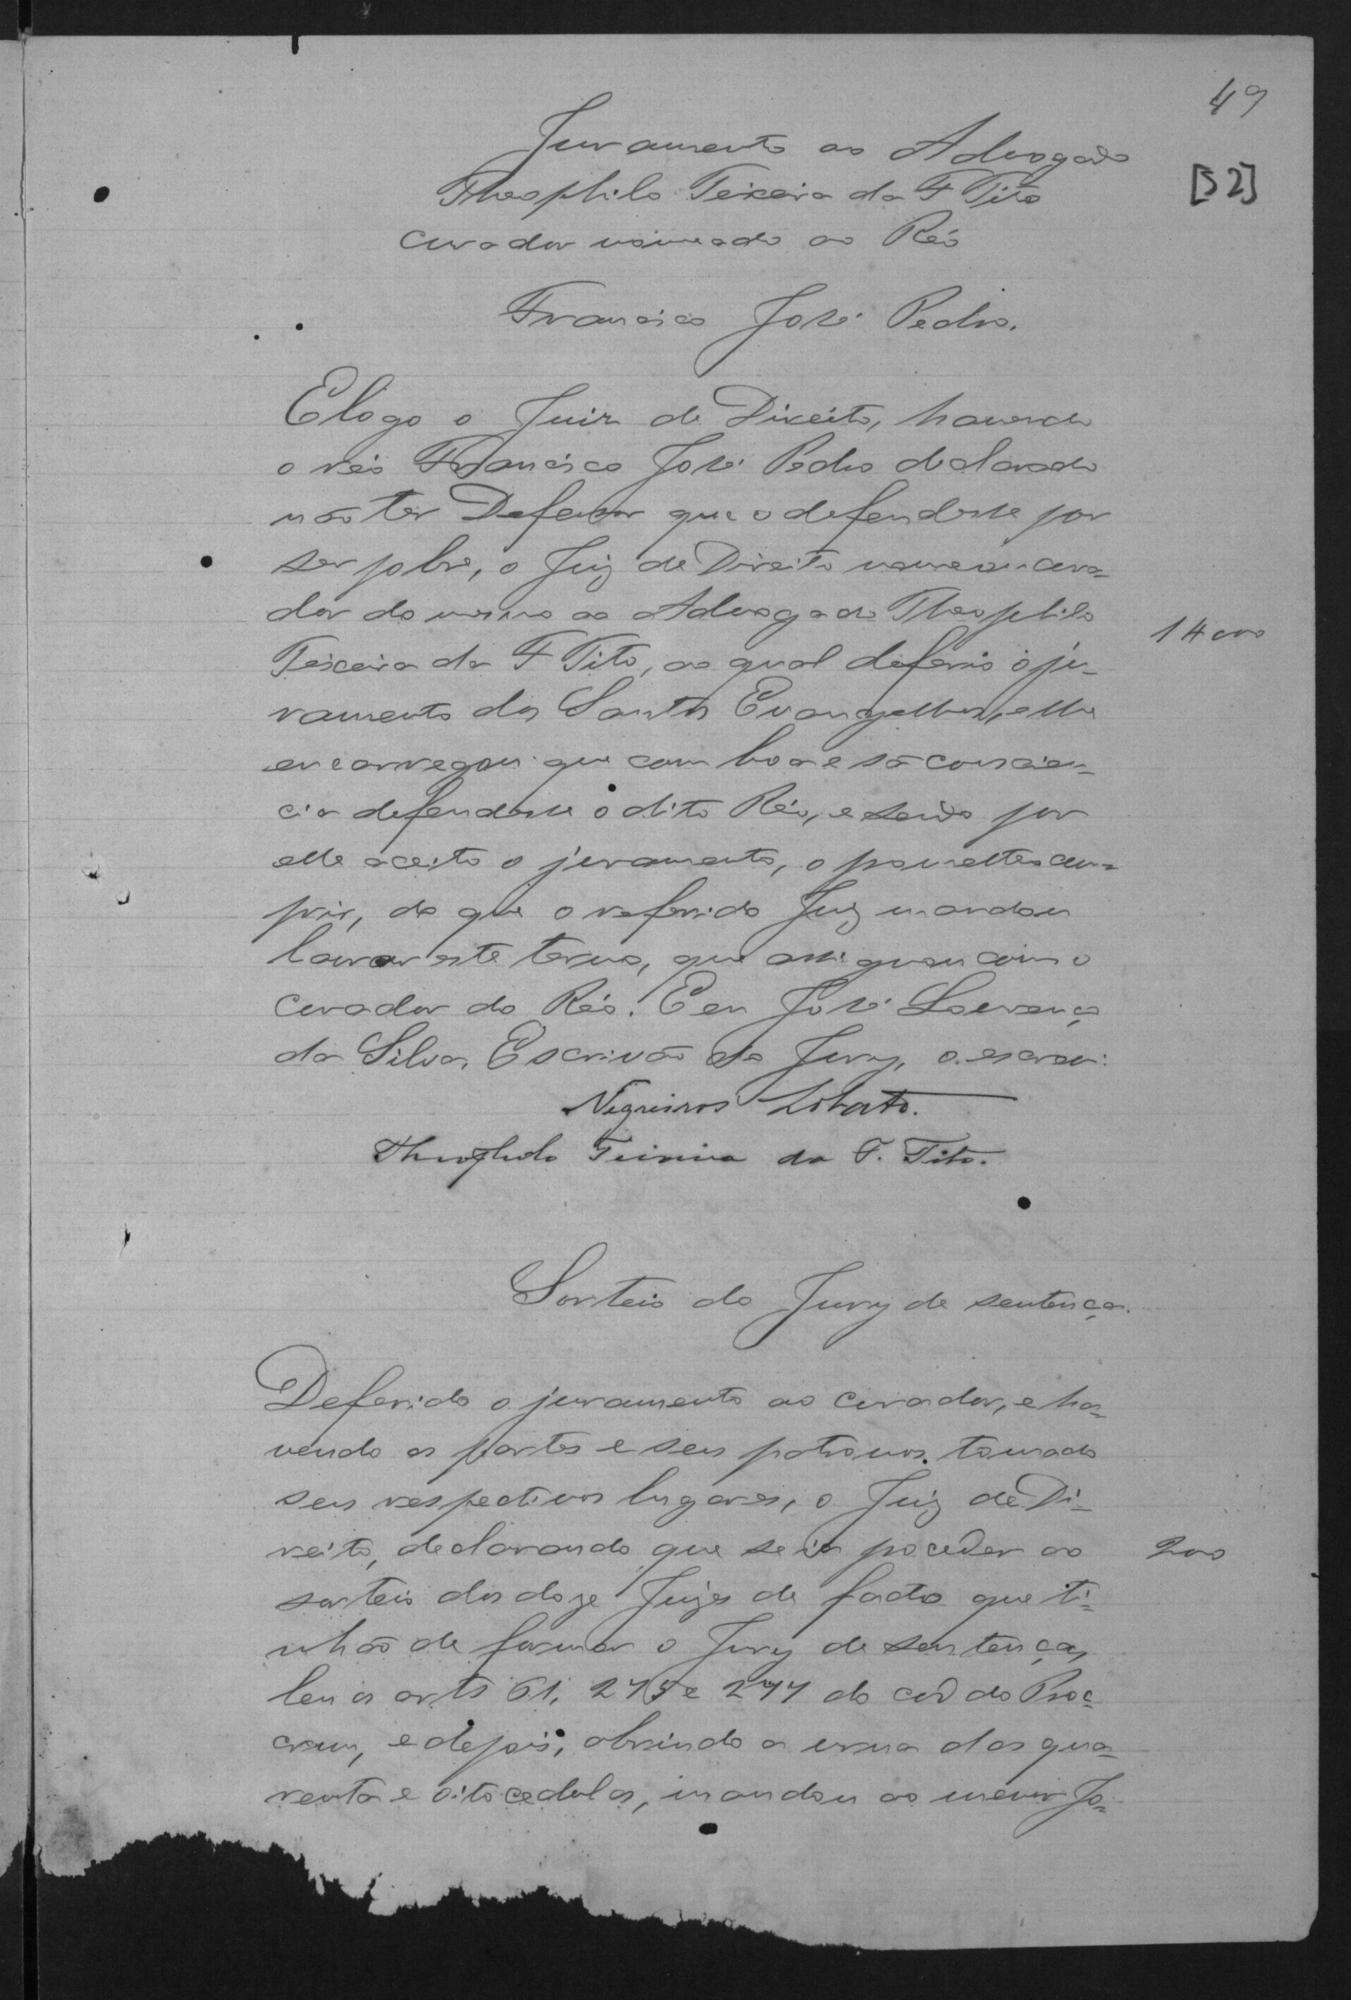 49
[52]
Juramento ao Advogado
Theophilo Teixeira da F Tito
curador nomeado ao Réo
Francisco José Pedro.
E logo o Juiz de Direito, havendo
o réo Francisco José Pedro declarado
não ter Defensor que o defendesse por
ser pobre, o Juiz de Direito nomeou cura-
dor do mesmo ao Advogado Theophilo
Teixeira da F Tito, ao qual deferio o ju-
ramento dos Santos Evangelhos, e lhe
encarregou que com boa e sã conscien-
cia defendesse o dito Réo, e sendo por
elle aceito o juramento, o prometteo cum-
prir, do que o referido Juiz mandou
lavrar este termo, que assignou com o
curador do Réo. E eu José Lourenço
da Silva, Escrivão do Jury, o escrevi.
Negreiros Lobato.
Theophilo Teixeira da F. Tito.
Sorteio do Jury de sentença.
Deferido o juramento ao curador, e ha-
vendo as partes e seus patronos tomado
seus respectivos lugares, o Juiz de Di-
reito, declarando que se ia proceder ao
200
sorteio dos doze Juizes de facto que ti-
nhão de formar o Jury de sentença,
leu os arts 61, 275 e 277 do cod do Proc
crim, e depois, abrindo a urna das qua-
renta e oito cedulas, mandou ao menor Jo-